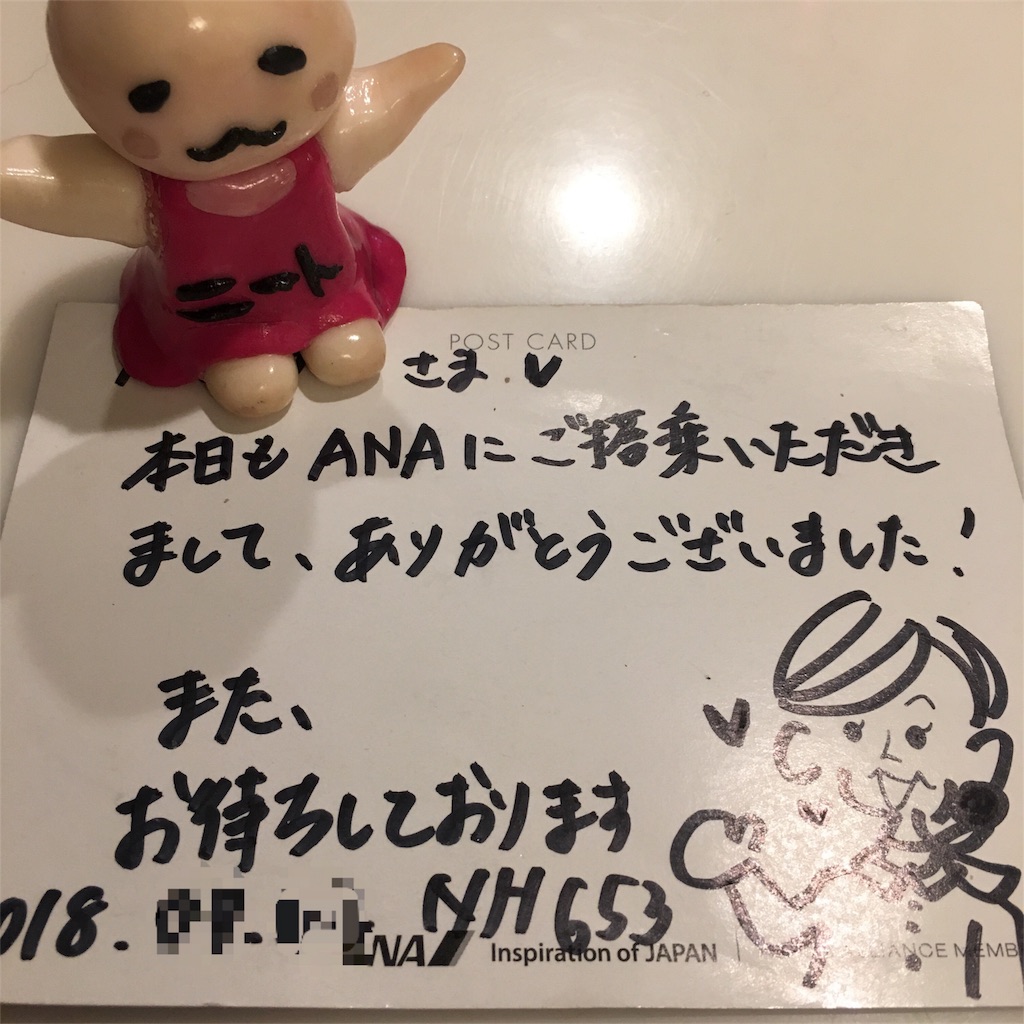 ニート
POST CARD
さま ♥
本日も ANAに ご搭乗いただき
まして、ありがとうございました！
また、
お待ちしております
018. NH653
ANA Inspiration of JAPAN